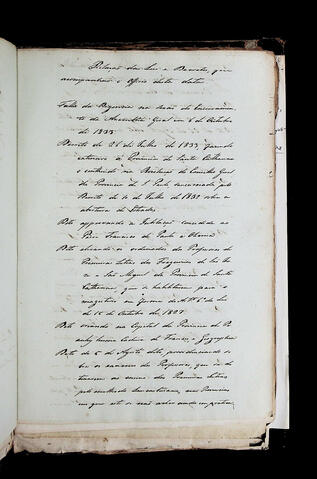 Relação das Leis e Decretos, que
acompanhão o officio desta data
Falla da Regencia na Sessão do Encerramen-
to da Assembléa Geral em 6 de Outubro
de 1833
Decreto de 26 de Julho de 1833 fazendo
extensivo á Provincia de Santa Catharina
o contheudo na Resolução do Conselho Geral
da Provincia de S. Paulo sanccionada pelo
Decreto de 10 de Julho de 1832 sobre a
abertura de Estradas.
Dito approvando a Jubilação concedida ao
Padre Francisco de Paula e Oliveira
Dito elevando os ordenados dos Professores de
Primeiras Letras das Freguezias de
e São Miguel da Provincia de Santa
Catharina, que se habilitarem para o
magisterio na forma do Art. 6 da Lei
de 15 de Outubro de 1827
Dito creando na Capital da Provincia do
huma Cadeira de Francez, e Geographia
Dito de 5 de Agosto dito, providenciando so-
bre os exames dos Professores, que de
no ensino das Primeiras Letras
pelo methodo Lancasteriano, nas Provincias
em que este se não achar ainda em pratica,